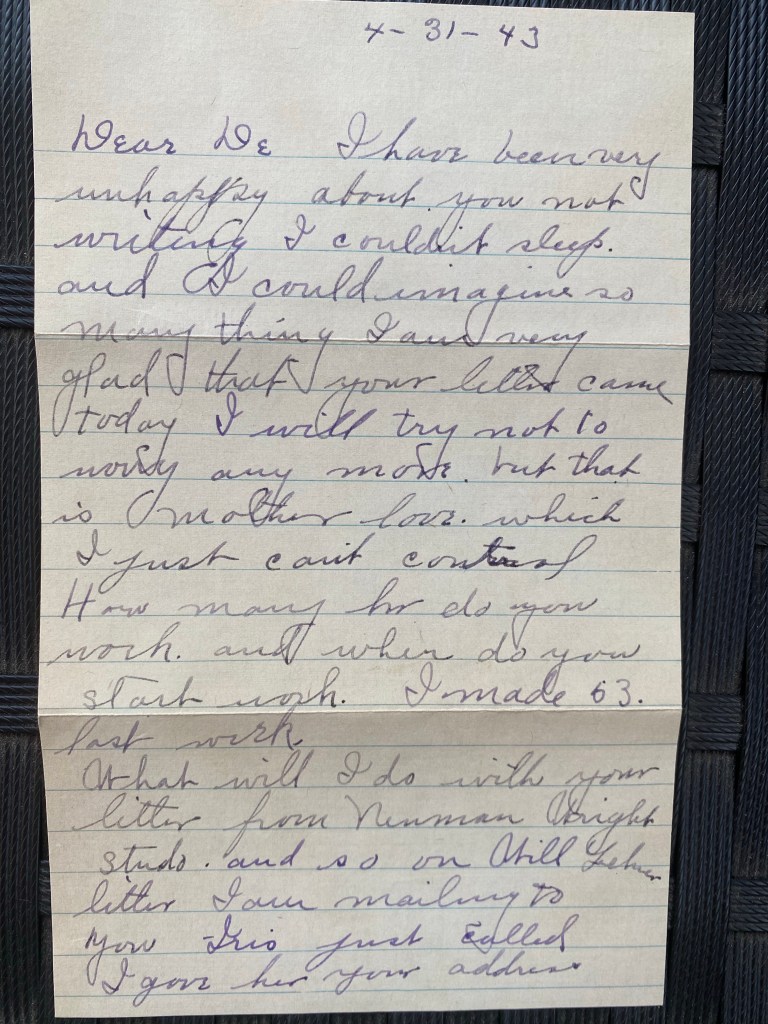 4-31-43
Dear De I have been very
unhappy about you not
writing I couldn't sleep.
and I could imagine so
many thing I am very
glad that your letter came
today I will try not to
worry any more. but that
is mother love. which
I just can't control
How many hr do you
work. and when do you
start work. I made 63.
last work.
What will I do with your
litter from Neuman Wright
studo. and so on Will
litter I am mailing to
you Iris just called
I gove her your address